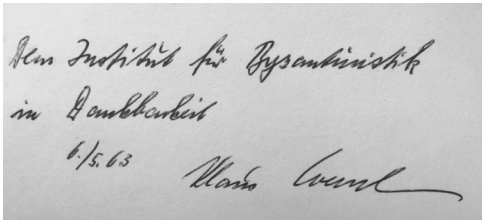 Dem Institut für Byzantinistik
in Dankbarkeit
6./5.63
Klaus